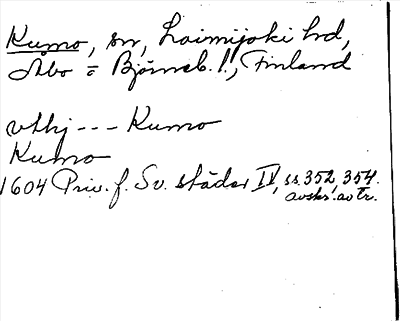 Kumo, sn, Loimijoki hd,
Åbo = Björneb. l., Finland
vthj --- Kumo
Kumo
1604 Priv. f. Sv. städer II, ss. 352, 354.
avskr. av tr.